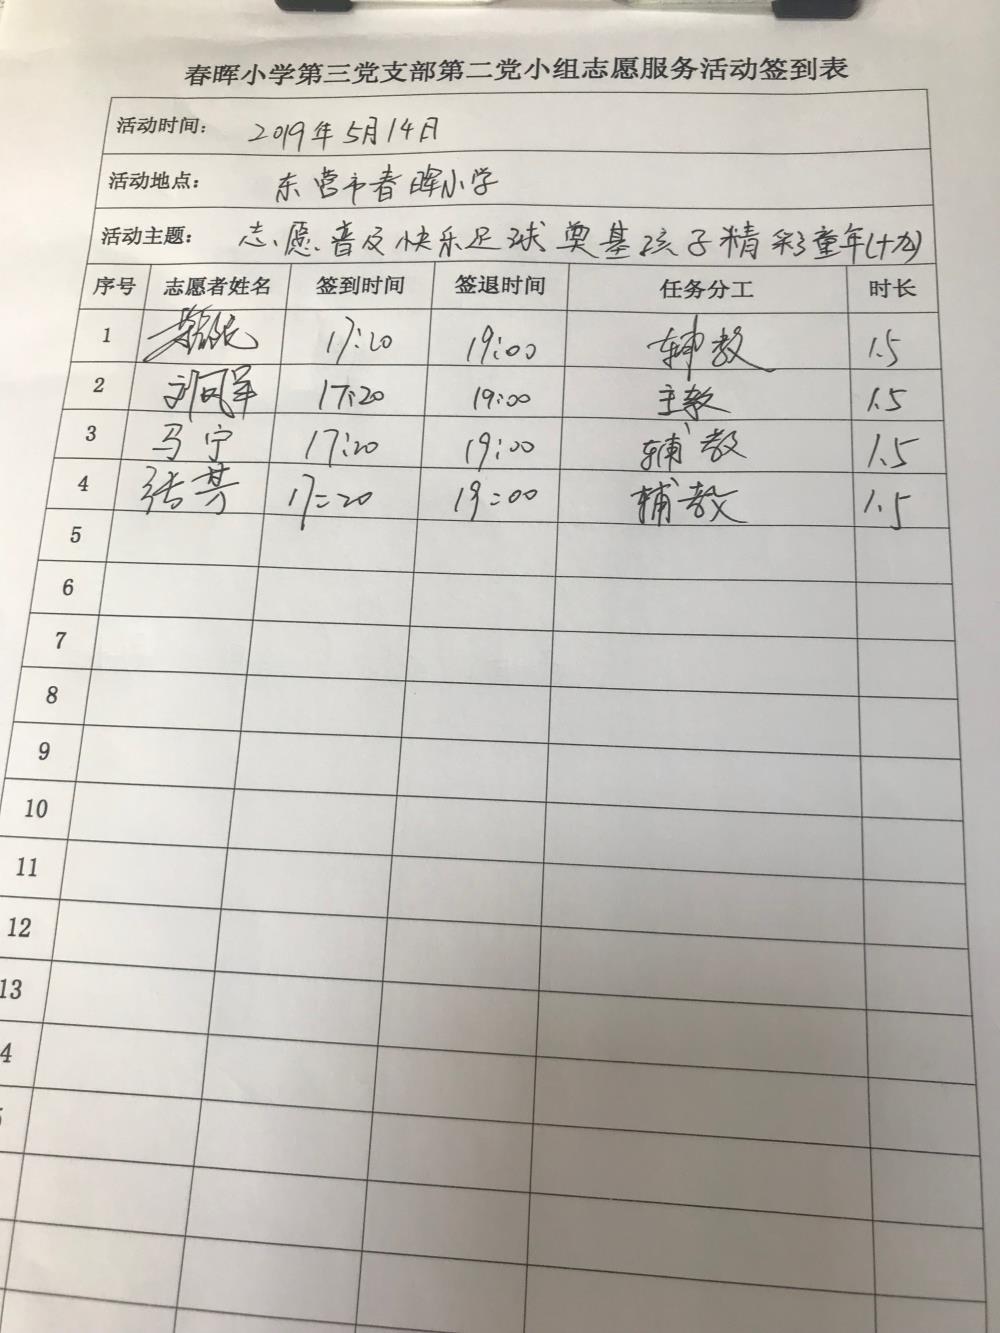 春晖小学第三党支部第二党小组志愿服务活动签到表
活动时间： 2019年5月14日
活动地点： 东营市春晖小学
活动主题： 志愿普及快乐足球奠基孩子精彩童年(十九)
序号 志愿者姓名 签到时间 签退时间 任务分工 时长
1 17:20 19:00 辅教 1.5
2 刘凤军 17:20 19:00 主教 1.5
3 马宁 17:20 19:00 辅教 1.5
4 张芳 17:20 19:00 辅教 1.5
5
6
7
8
9
10
11
12
13
4